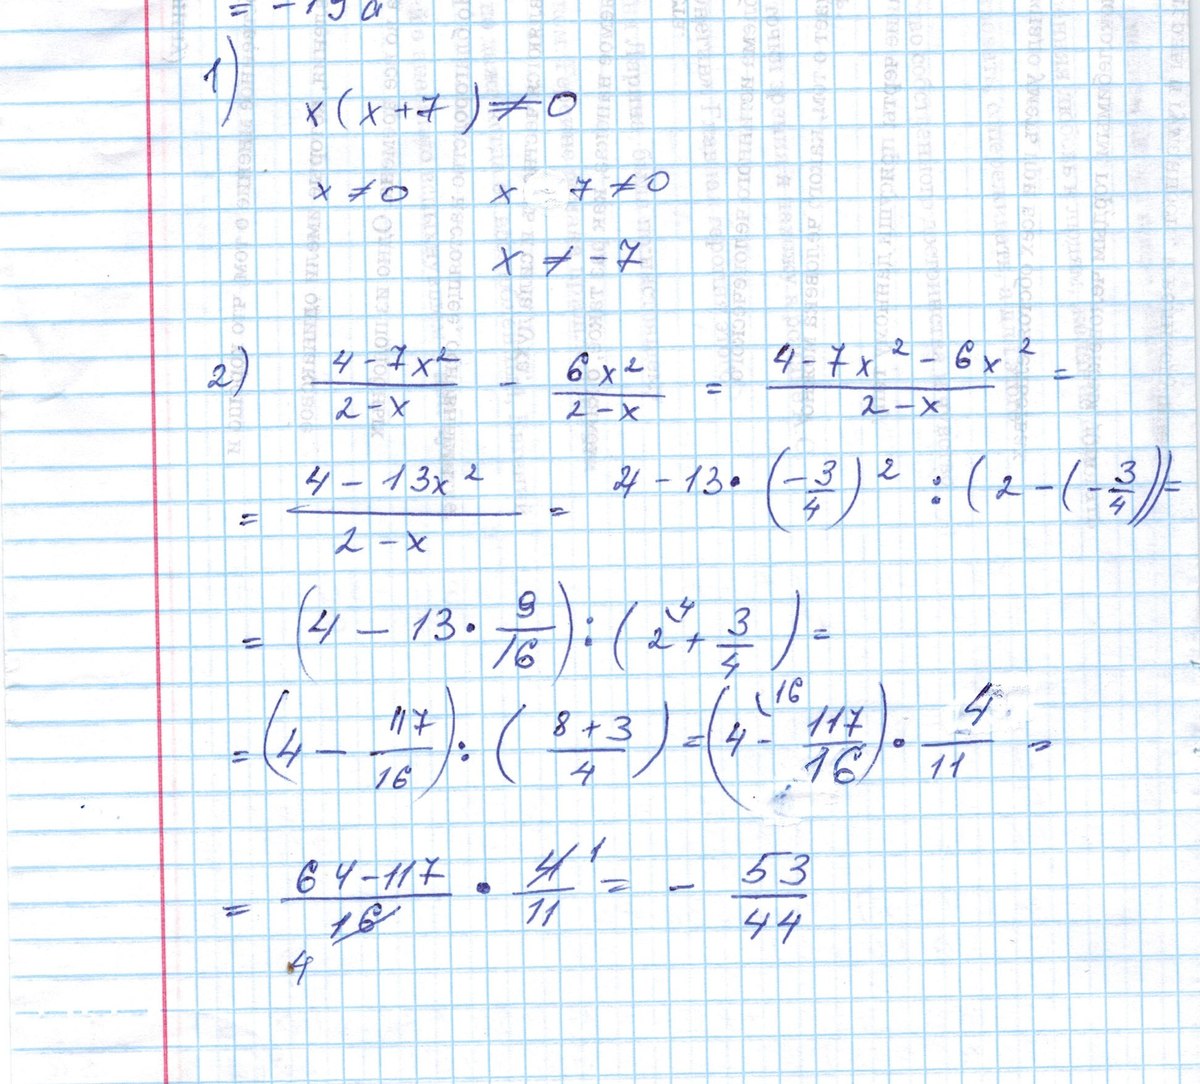 = -19a
1)
x(x+7)≠0
x≠0 x 7≠0
x ≠ -7
2) \frac{4-7x^2}{2-x} - \frac{6x^2}{2-x} = \frac{4-7x^2-6x^2}{2-x} =
= \frac{4-13x^2}{2-x} = 4-13·(\frac{-3}{4})^2 : (2-(-\frac{3}{4}))=
= (4-13·\frac{9}{16}) : (2^{\4}+\frac{3}{4}) =
= (4-\frac{117}{16}) : (\frac{8+3}{4}) = (4^{\16}-\frac{117}{16})·\frac{4}{11} =
= \frac{64-117}{16}·\frac{4}{11} = -\frac{53}{44}
4 1